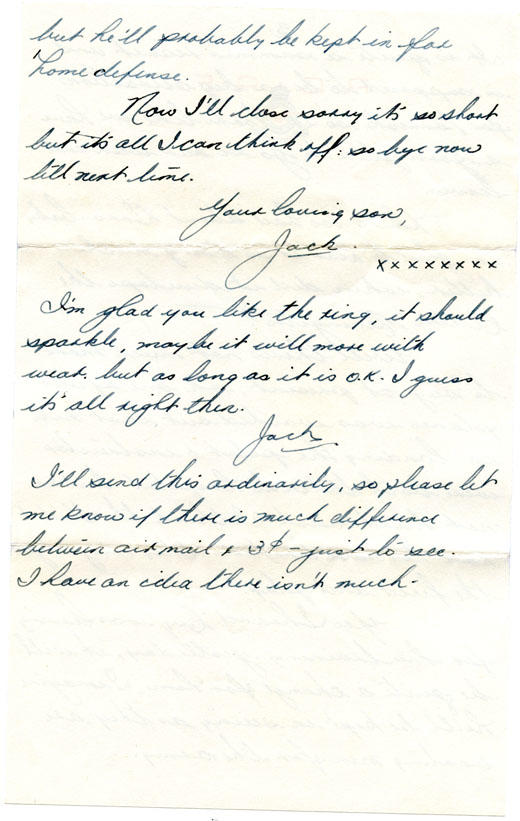 but he'll probably be kept in for
'home defense.
Now I'll close sorry it's so short
but it's all I can think off: so bye now
till next time.
Your loving son,
Jack.
xxxxxxxx
I'm glad you like the ring, it should
sparkle, maybe it will more with
wear. but as long as it is O.K. I guess
it's all right then.
Jack.
I'll send this ordinarily, so please let
me know if there is much difference
between air mail & 3¢ - just to see.
I have an idea there isn't much.